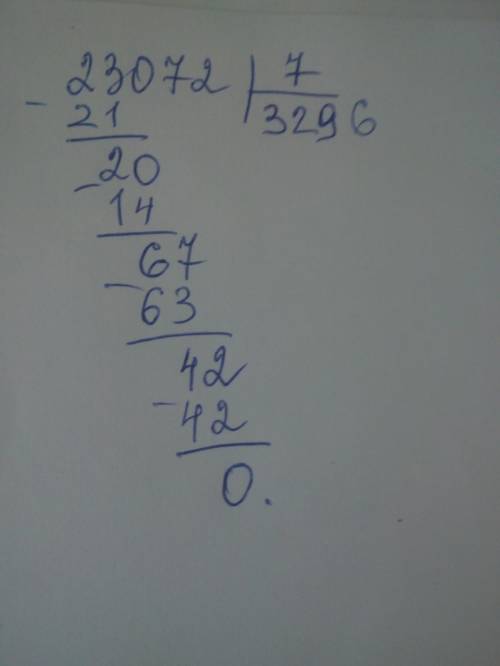 23072 | 7
- 21 3296
- 20
14
67
- 63
42
- 42
0.